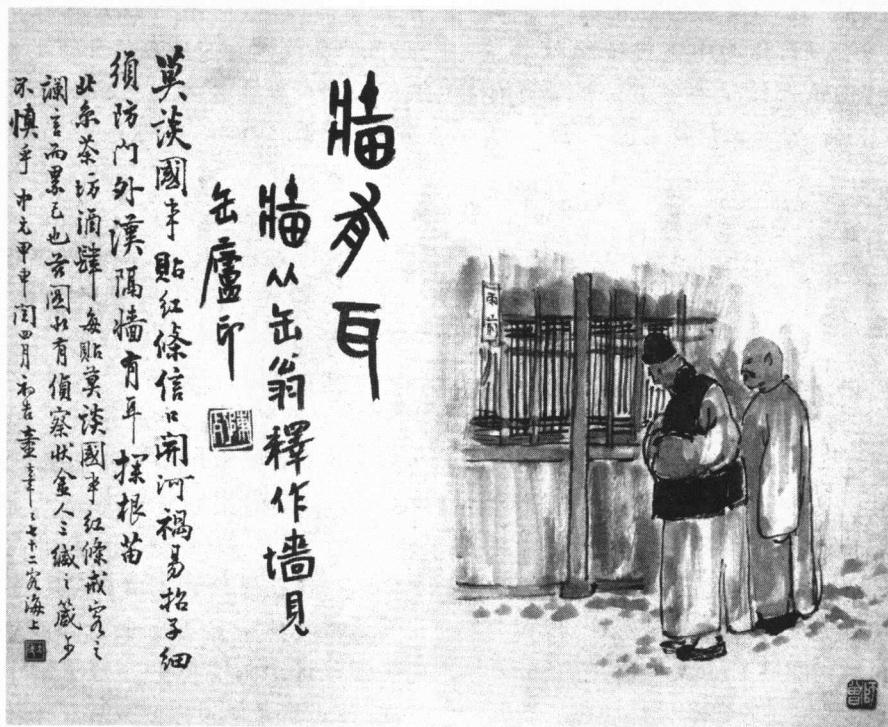 牆有耳
牆从缶翁釋作墻見
缶廬印
莫談國事貼紅條信口開河禍易招子細
須防門外漢隔牆有耳探根苗
北京茶坊酒肆每貼莫談國事紅條戒客之
讕言而累己也圖有偵察狀金人三緘之箴可
不慎乎中元甲申閏四月初吉七十二客海上
師曾